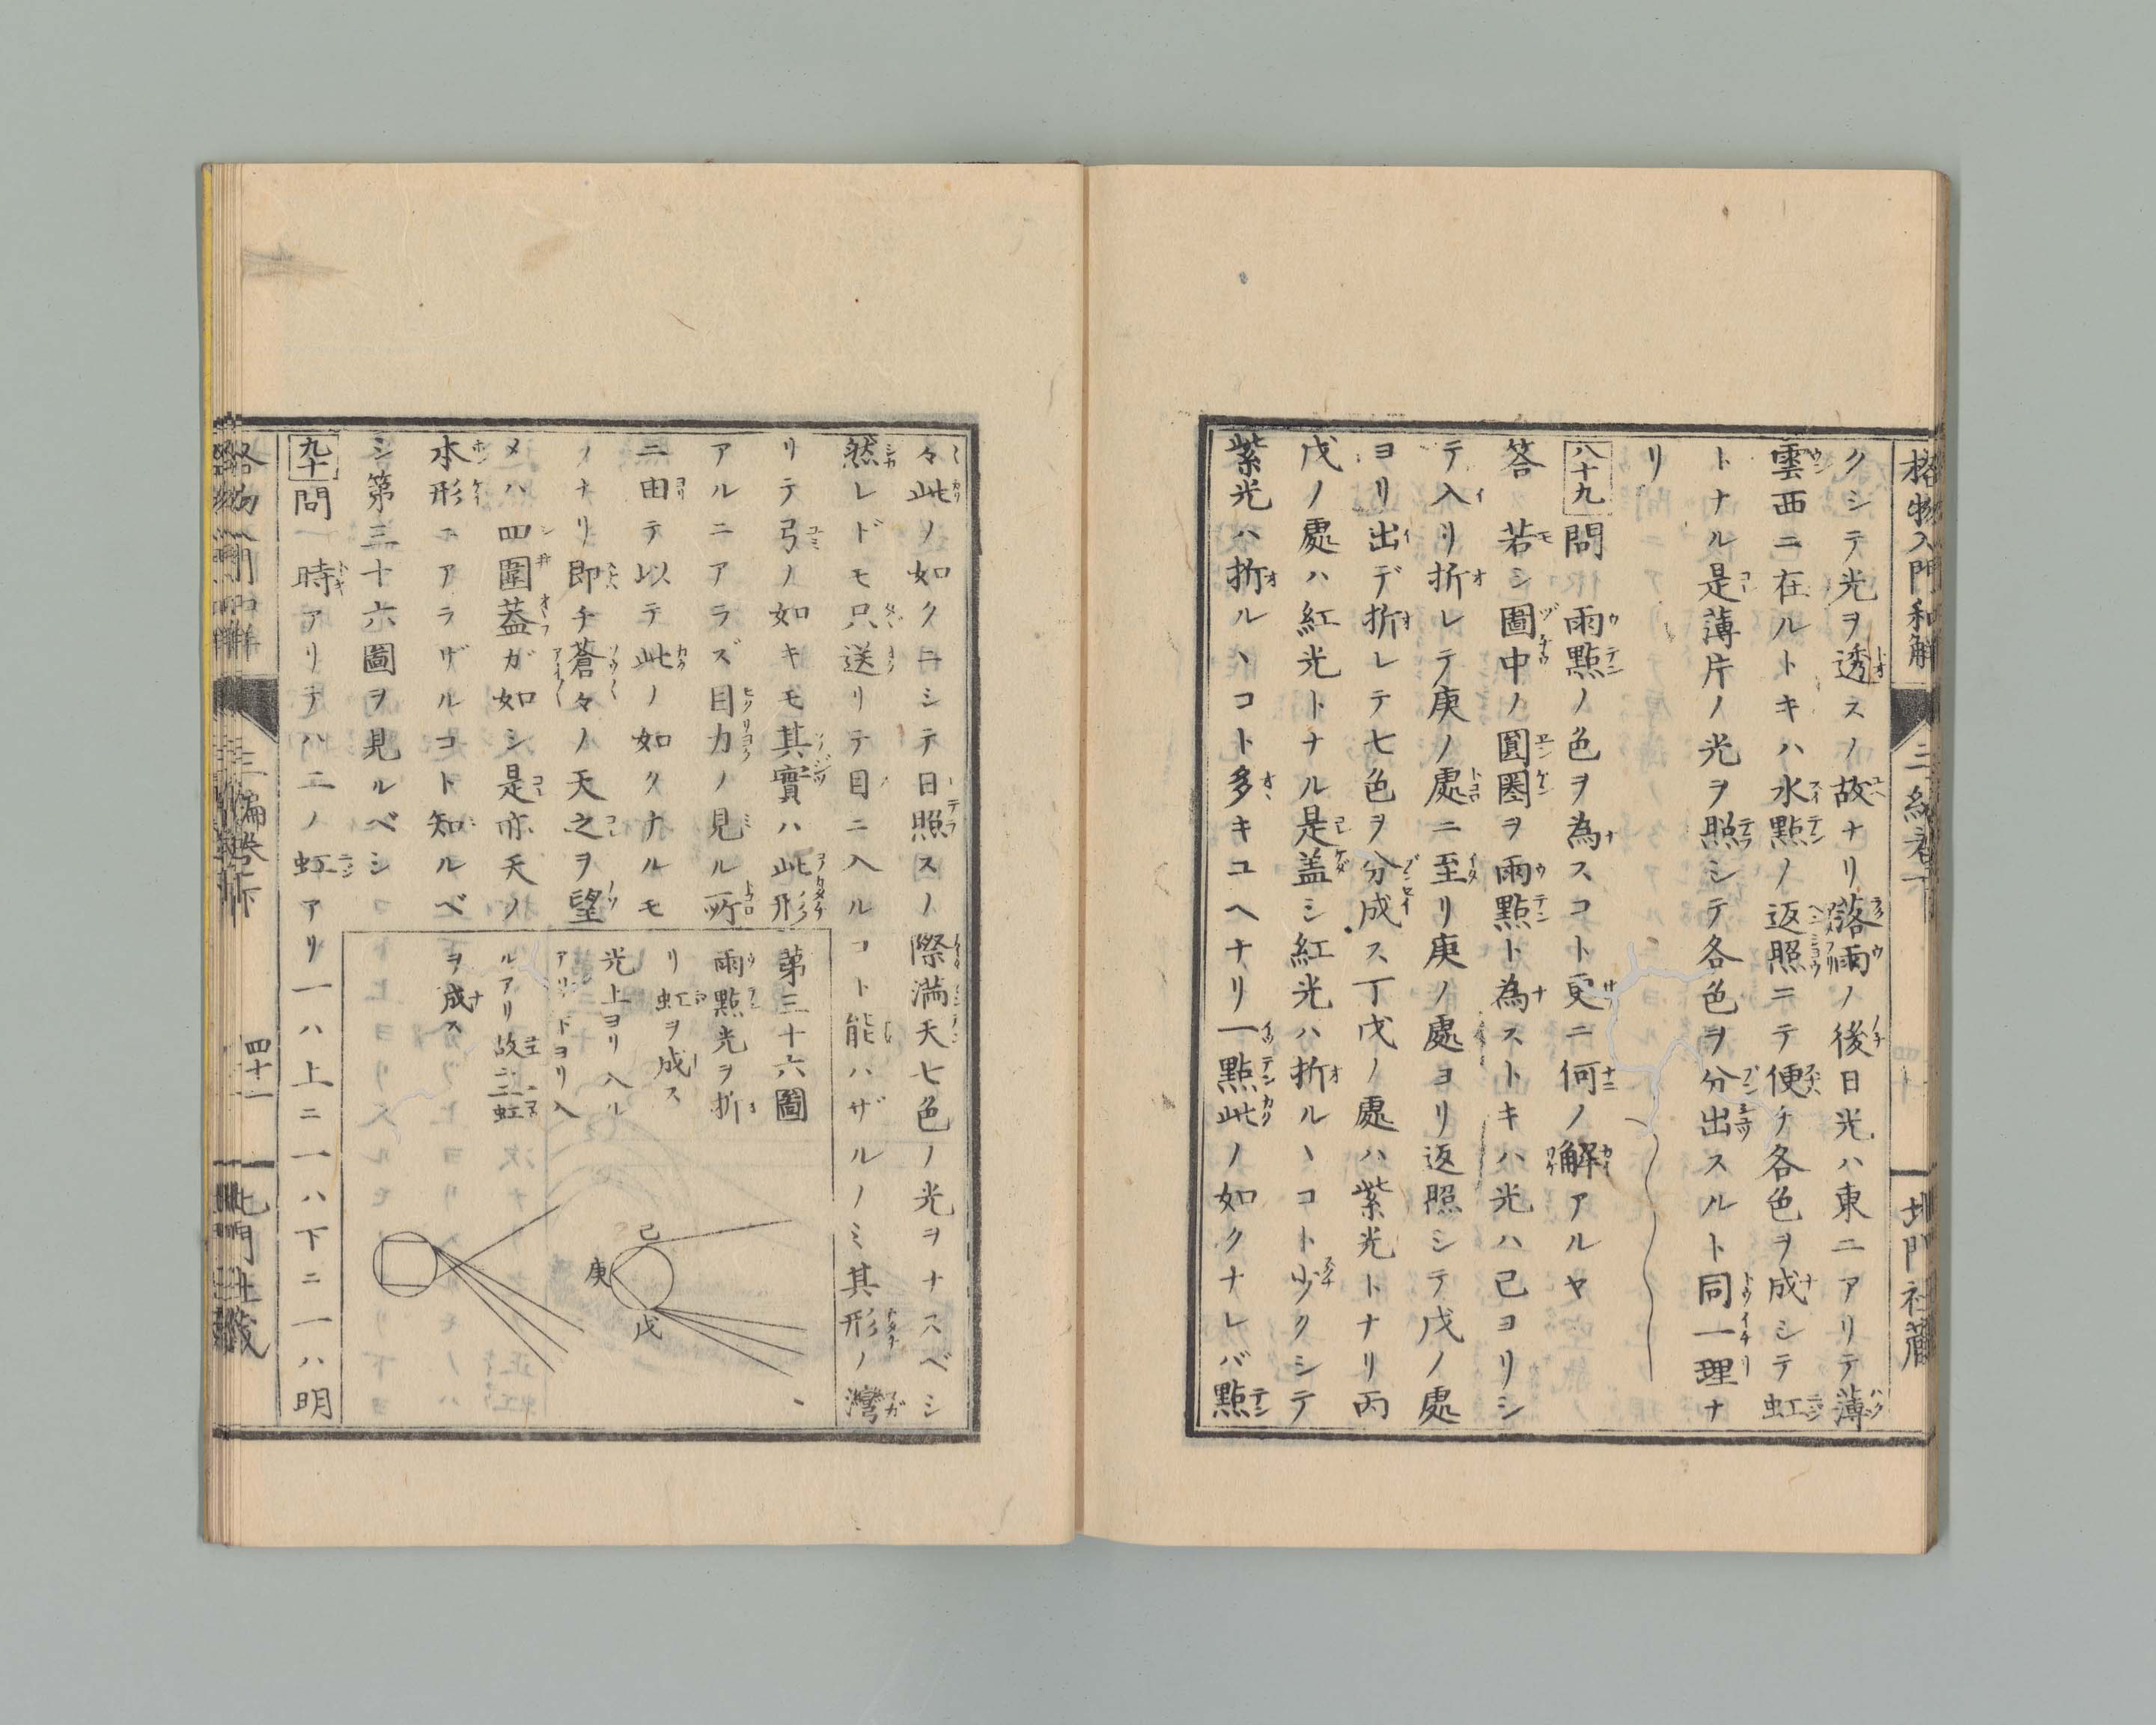 格物入門和解
クシテ光ヲ透スノ故ナリ落雨ノ後日光ハ東ニアリテ薄
雲西ニ在ルトキハ水點ノ返照ニテ便チ各色ヲ成シテ虹
トナル是薄片ノ光ヲ照シテ各色ヲ分出スルト同一理ナ
リ
八十九問 雨點ノ色ヲ為スコト更ニ何ノ解アルヤ
答 若シ圖中ノ圓圏ヲ雨點ト為ストキハ光ハ己ヨリシ
テ入リ折レテ庚ノ處ニ至リ庚ノ處ヨリ返照シテ戊ノ處
ヨリ出デ折レテ七色ヲ分成ス丁戊ノ處ハ紫光トナリ丙
戊ノ處ハ紅光トナル是盖シ紅光ハ折ルヽコト少クシテ
紫光ハ折ルヽコト多キユヘナリ一點此ノ如クナレバ點
々此ノ如クニシテ日照スノ際満天七色ノ光ヲナスベシ
然レドモ只送リテ目ニ入ルコト能ハザルノミ其形ノ灣
リテ弓ノ如キモ其實ハ此形
アルニアラズ目力ノ見ル所
ニ由テ以テ此ノ如クナルモ
ノナリ即チ蒼々ノ天之ヲ望
メハ四圍蓋ガ如シ是亦天ノ
本形ニアラザルコト知ルベ
シ第三十六圖ヲ見ルベシ
第三十六圖
雨點光ヲ折
リ虹ヲ成ス
光上ヨリ入ル
アリ下ヨリ入
ルアリ故ニ二虹
ヲ成ス
己
庚
戊
九十問 一時アリテハ二ノ虹アリ一ハ上ニ一ハ下ニ一ハ明
三編巻下
四十一
北門社藏